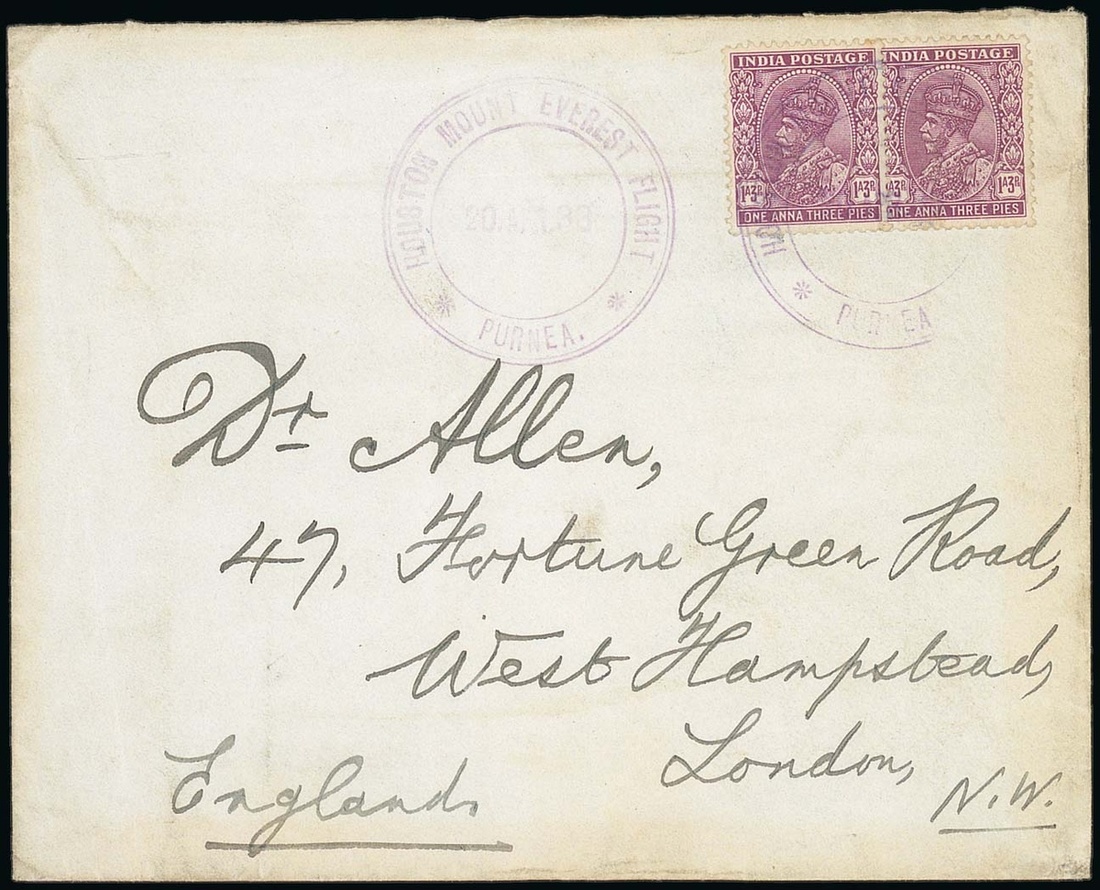 HOUSTON MOUNT EVEREST FLIGHT
PURNEA.
INDIA POSTAGE
1A3P 1A3P
ONE ANNA THREE PIES
INDIA POSTAGE
A3P 1A3P
ONE ANNA THREE PIES
HOU
PURNEA
Dr Allen,
47, Fortune Green Road,
West Hampstead,
London,
N.W.
England.